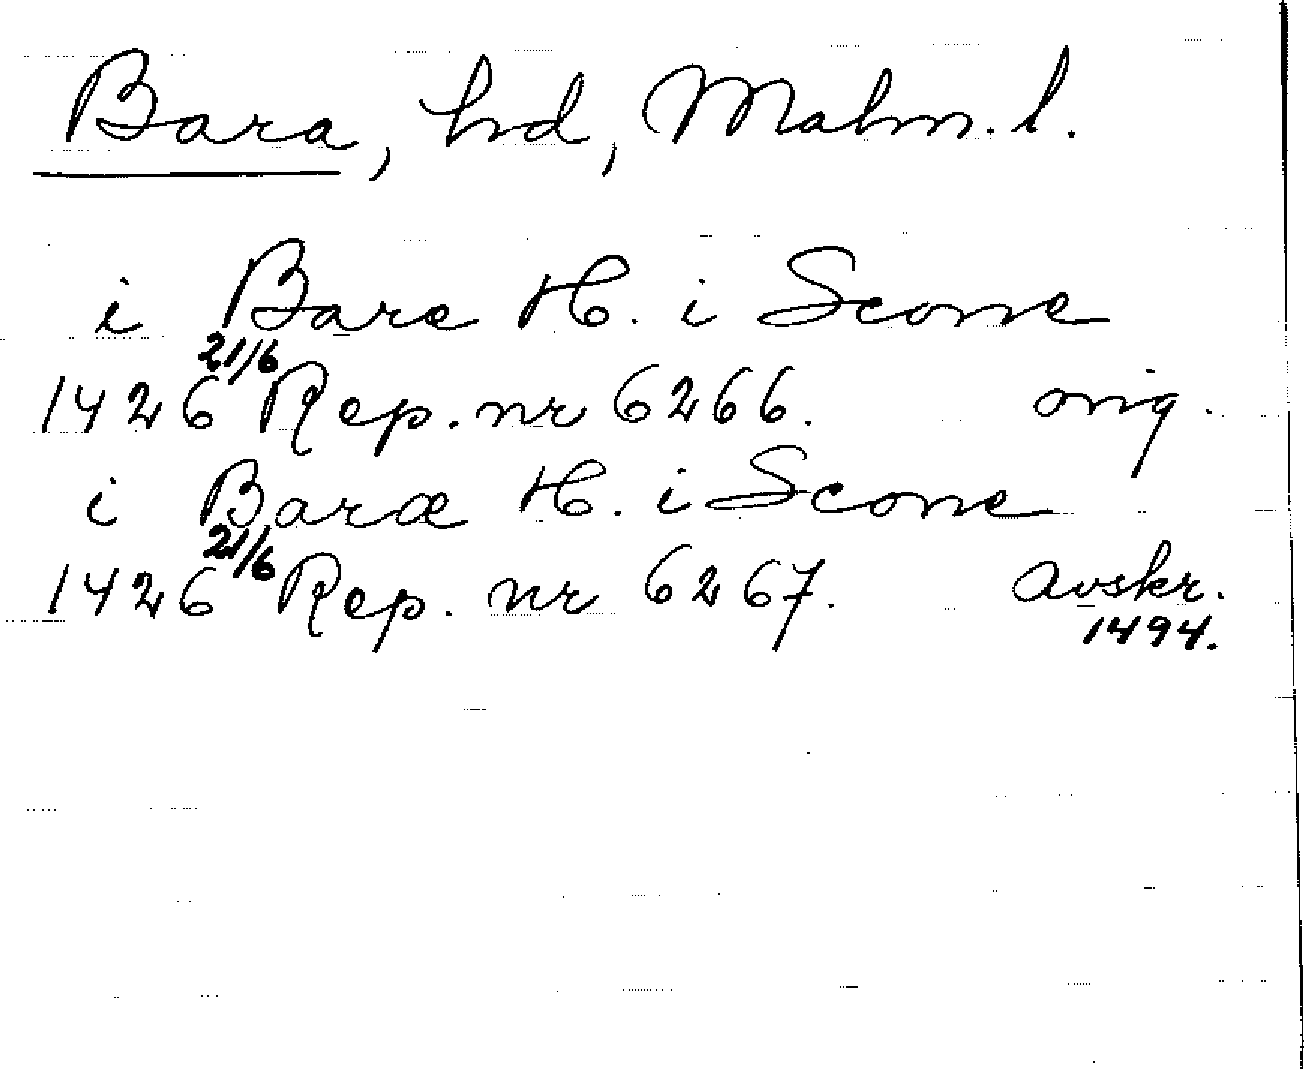 Bara, hd, Malm. l.
i Bare H. i Scone
1426 21/6 Rep. nr 6266. orig.
i Baræ H. i Scone
1426 21/6 Rep. nr 6267. avskr.
1494.